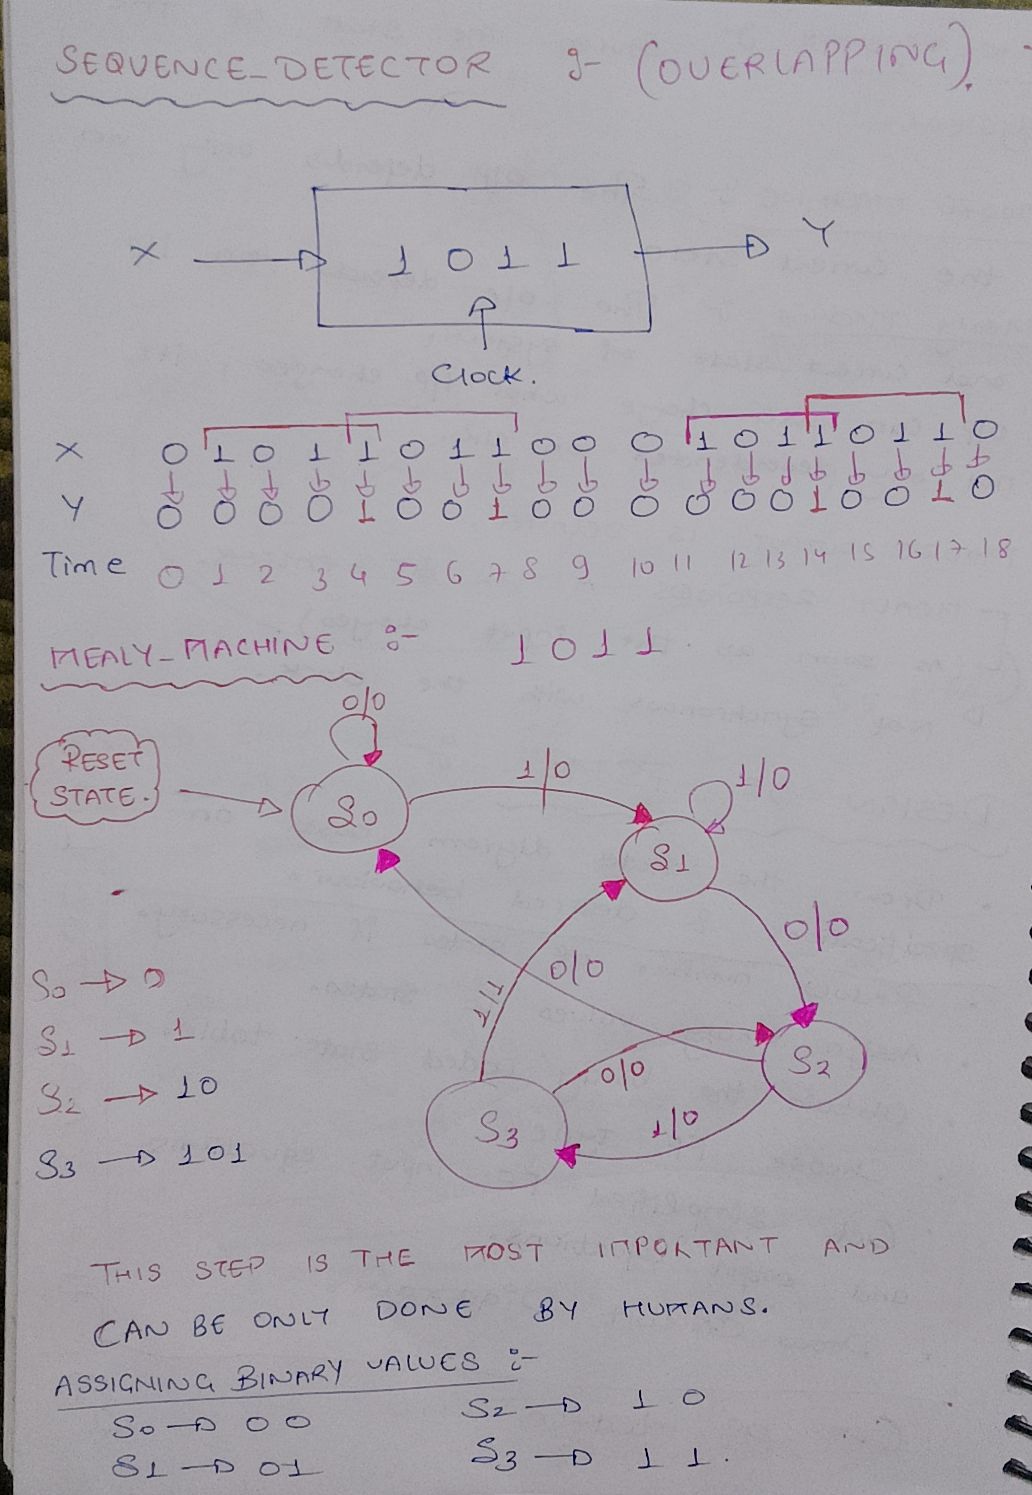 SEQUENCE_DETECTOR :- (OVERLAPPING).
X 1 0 1 1 Y
Clock.
X 0 1 0 1 1 0 1 1 0 0 0 1 0 1 1 0 1 1 0
Y 0 0 0 0 1 0 0 1 0 0 0 0 0 0 1 0 0 1 0
Time 0 1 2 3 4 5 6 7 8 9 10 11 12 13 14 15 16 17 18
MEALY_MACHINE :- 1 0 1 1
0/0
RESET
STATE.
S0
1/0
1/0
S1
0/0
0/0
1/1
S0 → 0
S1 → 1
S2 → 10
S3 → 101
S2
0/0
1/0
S3
THIS STEP IS THE MOST IMPORTANT AND
CAN BE ONLY DONE BY HUMANS.
ASSIGNING BINARY VALUES :-
S0 → 00 S2 → 1 0
S1 → 01 S3 → 1 1.